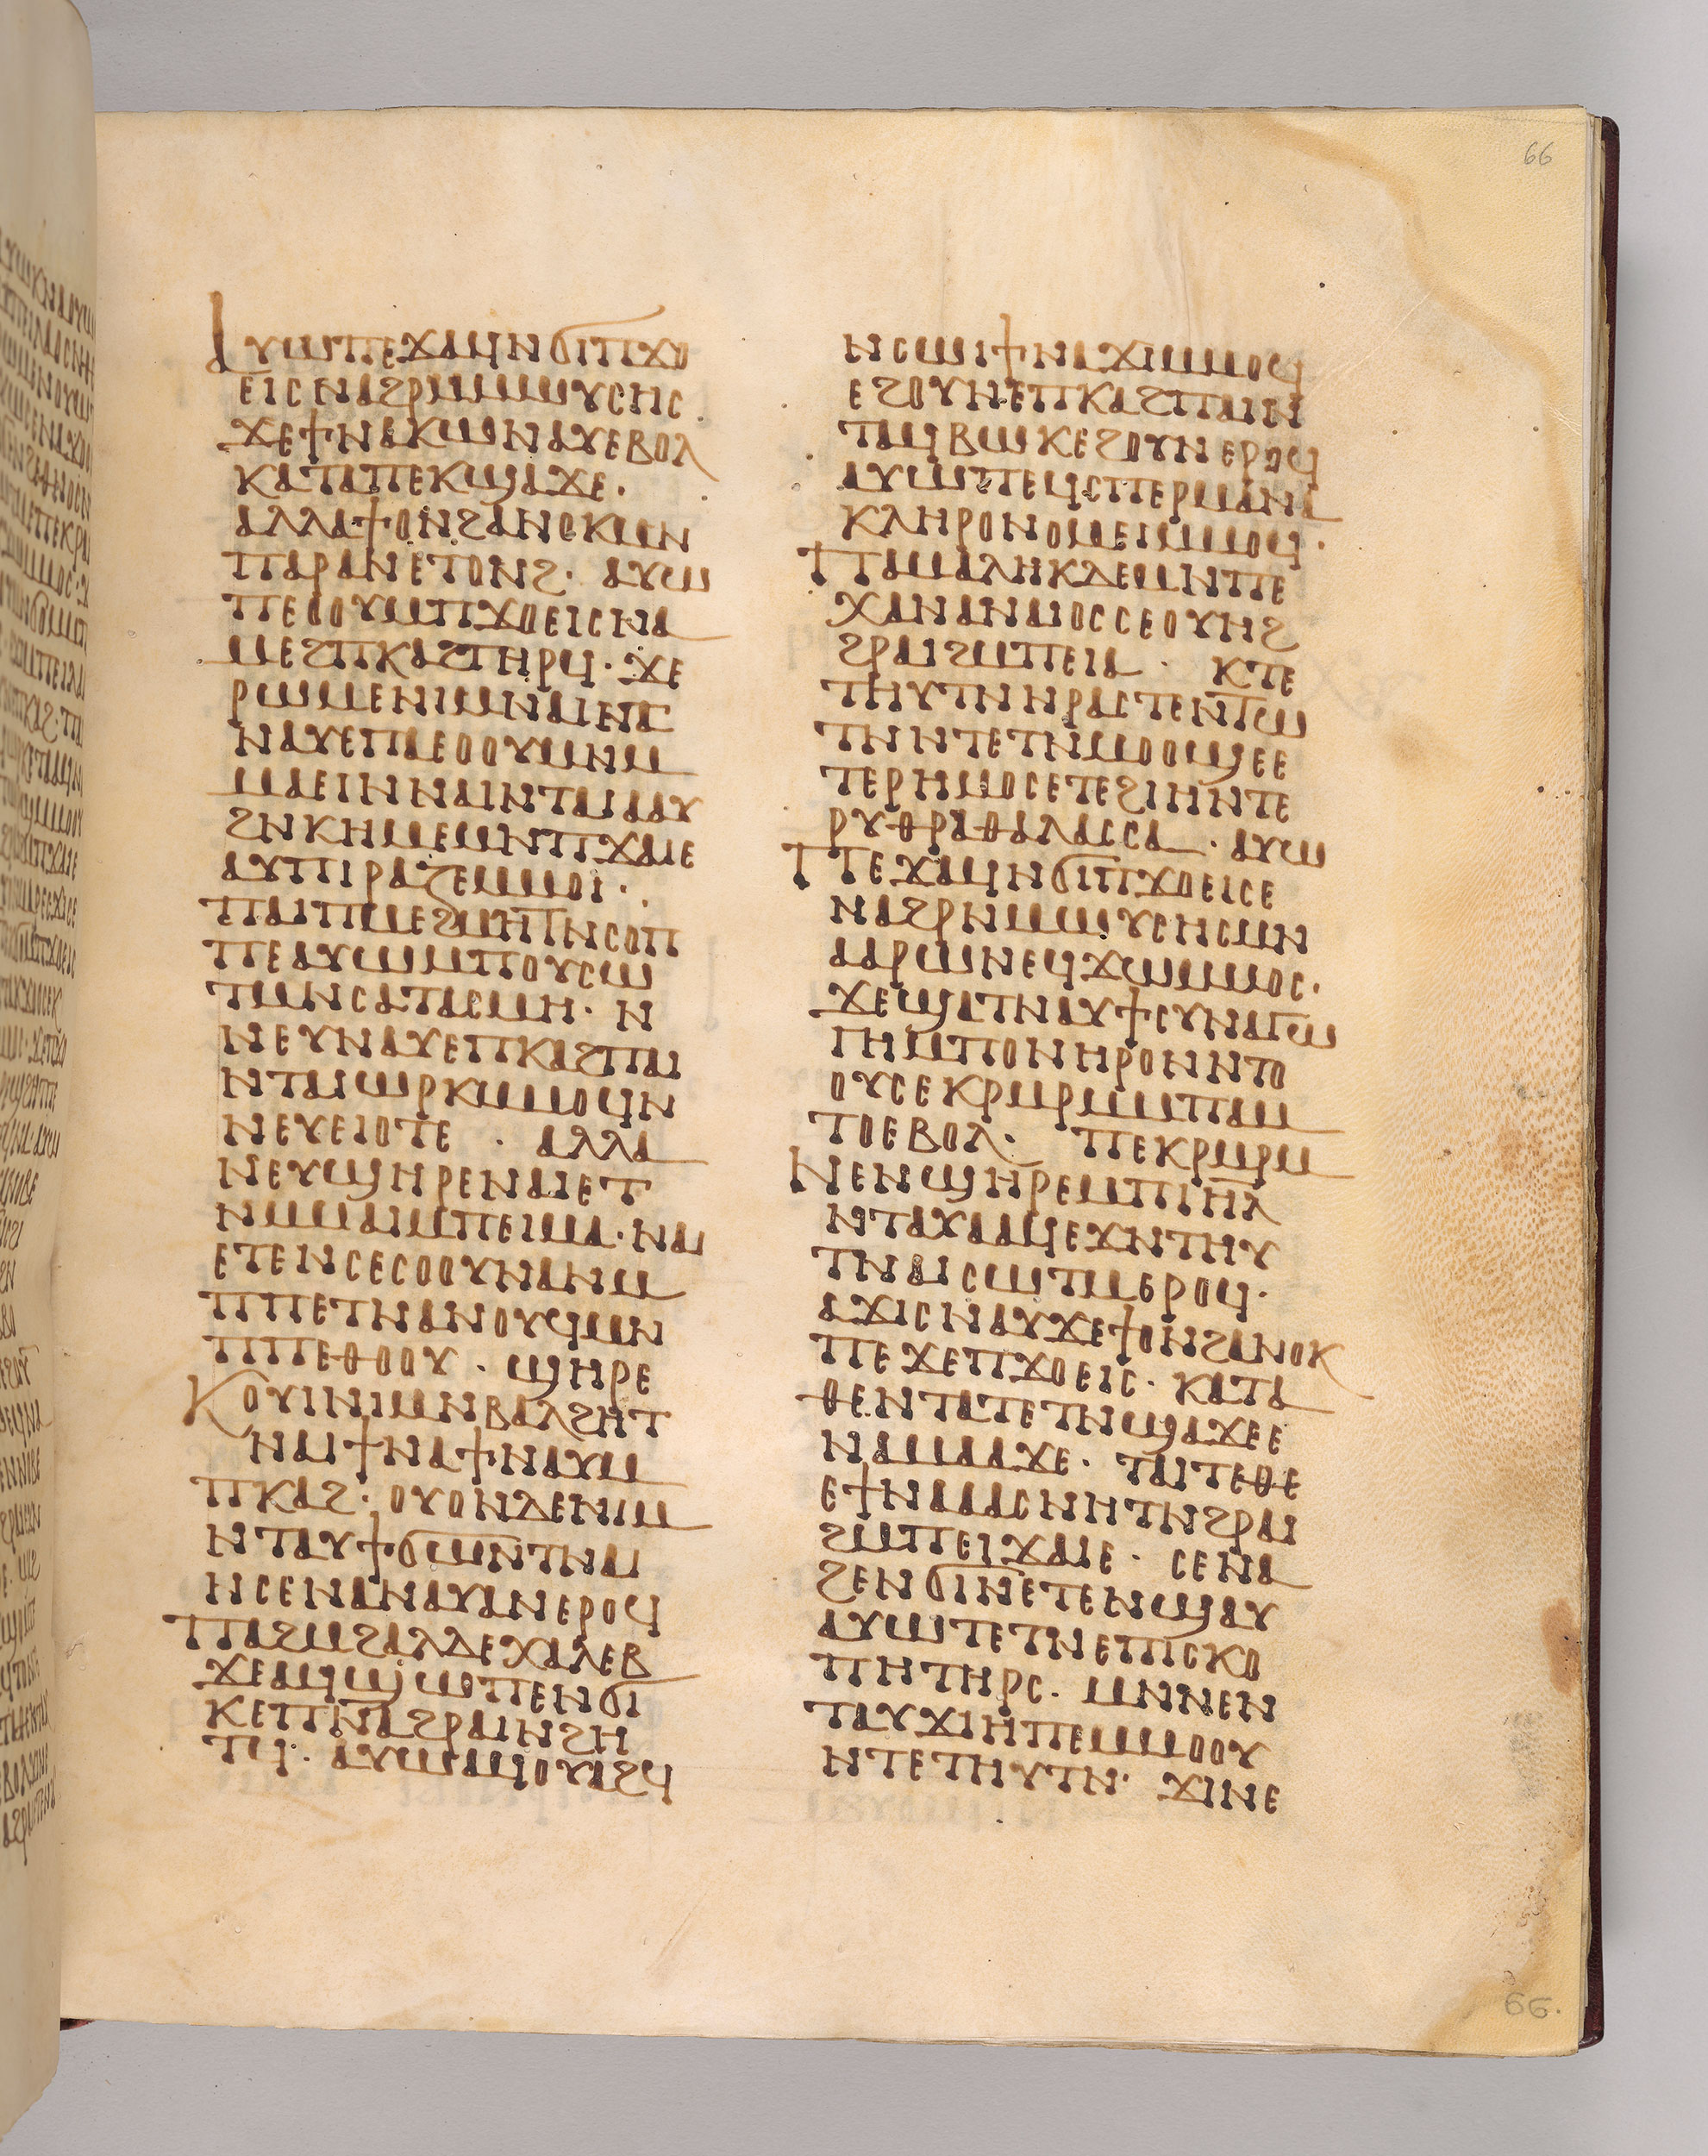 66
ⲁⲩⲱⲡⲉϫⲁϥⲛϭⲓⲡϫⲟ
ⲉⲓⲥⲛⲁϩⲣⲙⲙⲱⲩⲥⲏⲥ
ϫⲉϯⲛⲁⲕⲱⲛⲁⲩⲉⲃⲟⲗ
ⲕⲁⲧⲁⲡⲉⲕϣⲁϫⲉ·
ⲁⲗⲗⲁϯⲟⲛϩⲁⲛⲟⲕⲙⲛ
ⲡⲁⲣⲁⲛⲉⲧⲟⲛϩ· ⲁⲩⲱ
ⲡⲉⲟⲟⲩⲙⲡϫⲟⲉⲓⲥⲛⲁ
ⲙⲉϩⲡⲕⲁϩⲧⲏⲣϥ· ϫⲉ
ⲣⲱⲙⲉⲛⲓⲙⲛⲁⲓⲉⲧ
ⲛⲁⲩⲉⲡⲁⲉⲟⲟⲩⲙⲛⲙ
ⲙⲁⲉⲓⲛⲛⲁⲓⲛⲧⲁⲓⲁⲁⲩ
ϩⲛⲕⲏⲙⲉⲙⲛⲡϫⲁⲓⲉ
ⲁⲩⲡⲓⲣⲁⲍⲉⲙⲙⲟⲓ·
ⲡⲁⲓⲡⲙⲉϩⲙⲏⲧⲛⲥⲟⲡ
ⲡⲉⲁⲩⲱⲙⲡⲟⲩⲥⲱ
ⲧⲙⲛⲥⲁⲧⲁⲥⲙⲏ· ⲛ
ⲛⲉⲩⲛⲁⲩⲉⲡⲕⲁϩⲡⲁⲓ
ⲛⲧⲁⲓⲱⲣⲕⲙⲙⲟϥⲛ
ⲛⲉⲩⲉⲓⲟⲧⲉ · ⲁⲗⲗⲁ
ⲛⲉⲩϣⲏⲣⲉⲛⲁⲓⲉⲧ
ⲛⲙⲙⲁⲓⲙⲡⲉⲓⲙⲁ·ⲛⲁⲓ
ⲉⲧⲉⲛⲥⲉⲥⲟⲟⲩⲛⲁⲛⲙ
ⲡⲡⲉⲧⲛⲁⲛⲟⲩϥⲙⲛ
ⲡⲡⲉⲑⲟⲟⲩ · ϣⲏⲣⲉ
ⲕⲟⲩⲓⲛⲓⲙⲛⲃⲁⲗϩⲏⲧ
ⲛⲁⲓϯⲛⲁϯⲛⲁⲩⲙ
ⲡⲕⲁϩ· ⲟⲩⲟⲛⲇⲉⲛⲓⲙ
ⲛⲧⲁⲩϯϭⲱⲛⲧⲛⲁⲓ
ⲛⲥⲉⲛⲁⲛⲁⲩⲁⲛⲉⲣⲟϥ
ⲡⲁϩⲙϩⲁⲗⲇⲉⲭⲁⲗⲉⲃ
ϫⲉⲁϥϣⲱⲡⲉⲛϭⲓ
ⲕⲉⲡⲛⲁϩⲣⲁⲓⲛϩⲏ
ⲧϥ· ⲁⲩⲱⲁϥⲟⲩⲁϩϥ
ⲛⲥⲱⲓϯⲛⲁϫⲓⲙⲙⲟϥ
ⲉϩⲟⲩⲛⲉⲡⲕⲁϩⲡⲁⲓⲛ
ⲧⲁϥⲃⲱⲕⲉϩⲟⲩⲛⲉⲣⲟϥ
ⲁⲩⲱⲡⲉϥⲥⲡⲉⲣⲙⲁⲛⲁ
ⲕⲗⲏⲣⲟⲛⲟⲙⲉⲓⲙⲙⲟϥ·
ⲡⲁⲙⲁⲗⲏⲕⲇⲉⲙⲛⲡⲉ
ⲭⲁⲛⲁⲛⲁⲓⲟⲥⲥⲉⲟⲩⲏϩ
ϩⲣⲁⲓϩⲙⲡⲉⲓⲁ · ⲕⲧⲉ
ⲧⲏⲩⲧⲛⲛⲣⲁⲥⲧⲉⲛⲧⲱ
ⲧⲛⲛⲧⲉⲧⲛⲙⲟⲟϣⲉⲉ
ⲧⲉⲣⲏⲙⲟⲥⲉⲧⲉϩⲓⲏⲛⲧⲉ
ⲣⲩⲑⲣⲁⲑⲁⲗⲁⲥⲥⲁ · ⲁⲩⲱ
ⲡⲉϫⲁϥⲛϭⲓⲡϫⲟⲉⲓⲥⲉ
ⲛⲁϩⲣⲛⲙⲱⲩⲥⲏⲥⲙⲛ
ⲁⲁⲣⲱⲛⲉϥϫⲱⲙⲙⲟⲥ·
ϫⲉϣⲁⲧⲛⲁⲩϯⲥⲩⲛⲁⲅⲱ
ⲅⲏⲙⲡⲟⲛⲏⲣⲟⲛⲛⲧⲟ
ⲟⲩⲥⲉⲕⲣⲙⲣⲙⲙⲡⲁⲙ
ⲧⲟⲉⲃⲟⲗ· ⲡⲉⲕⲣⲙⲣⲙ
ⲛⲉⲛϣⲏⲣⲉⲙⲡⲓⲏⲗ
ⲛⲧⲁⲩⲁⲁϥⲉϫⲛⲧⲏⲩ
ⲧⲛⲁⲓⲥⲱⲧⲙⲉⲣⲟϥ·
ⲁϫⲓⲥⲛⲁⲩϫⲉϯⲟⲛϩⲁⲛⲟⲕ
ⲡⲉϫⲉⲡϫⲟⲉⲓⲥ· ⲕⲁⲧⲁ
ⲑⲉⲛⲧⲁⲧⲉⲧⲛϣⲁϫⲉⲉ
ⲛⲁⲙⲁⲁϫⲉ· ⲧⲁⲓⲧⲉⲑⲉ
ⲉϯⲛⲁⲁⲁⲥⲛⲏⲧⲛϩⲣⲁⲓ
ϩⲙⲡⲉⲓϫⲁⲓⲉ· ⲥⲉⲛⲁ
ϩⲉⲛϭⲓⲛⲉⲧⲉⲛϣⲁⲩ
ⲁⲩⲱⲧⲉⲧⲛⲉⲡⲓⲥⲕⲟ
ⲡⲏⲧⲏⲣⲥ· ⲙⲛⲛⲉⲛ
ⲧⲁⲩϫⲓⲏⲡⲉⲙⲙⲟⲟⲩ
ⲛⲧⲉⲧⲏⲩⲧⲛ· ϫⲓⲛⲉ
66.